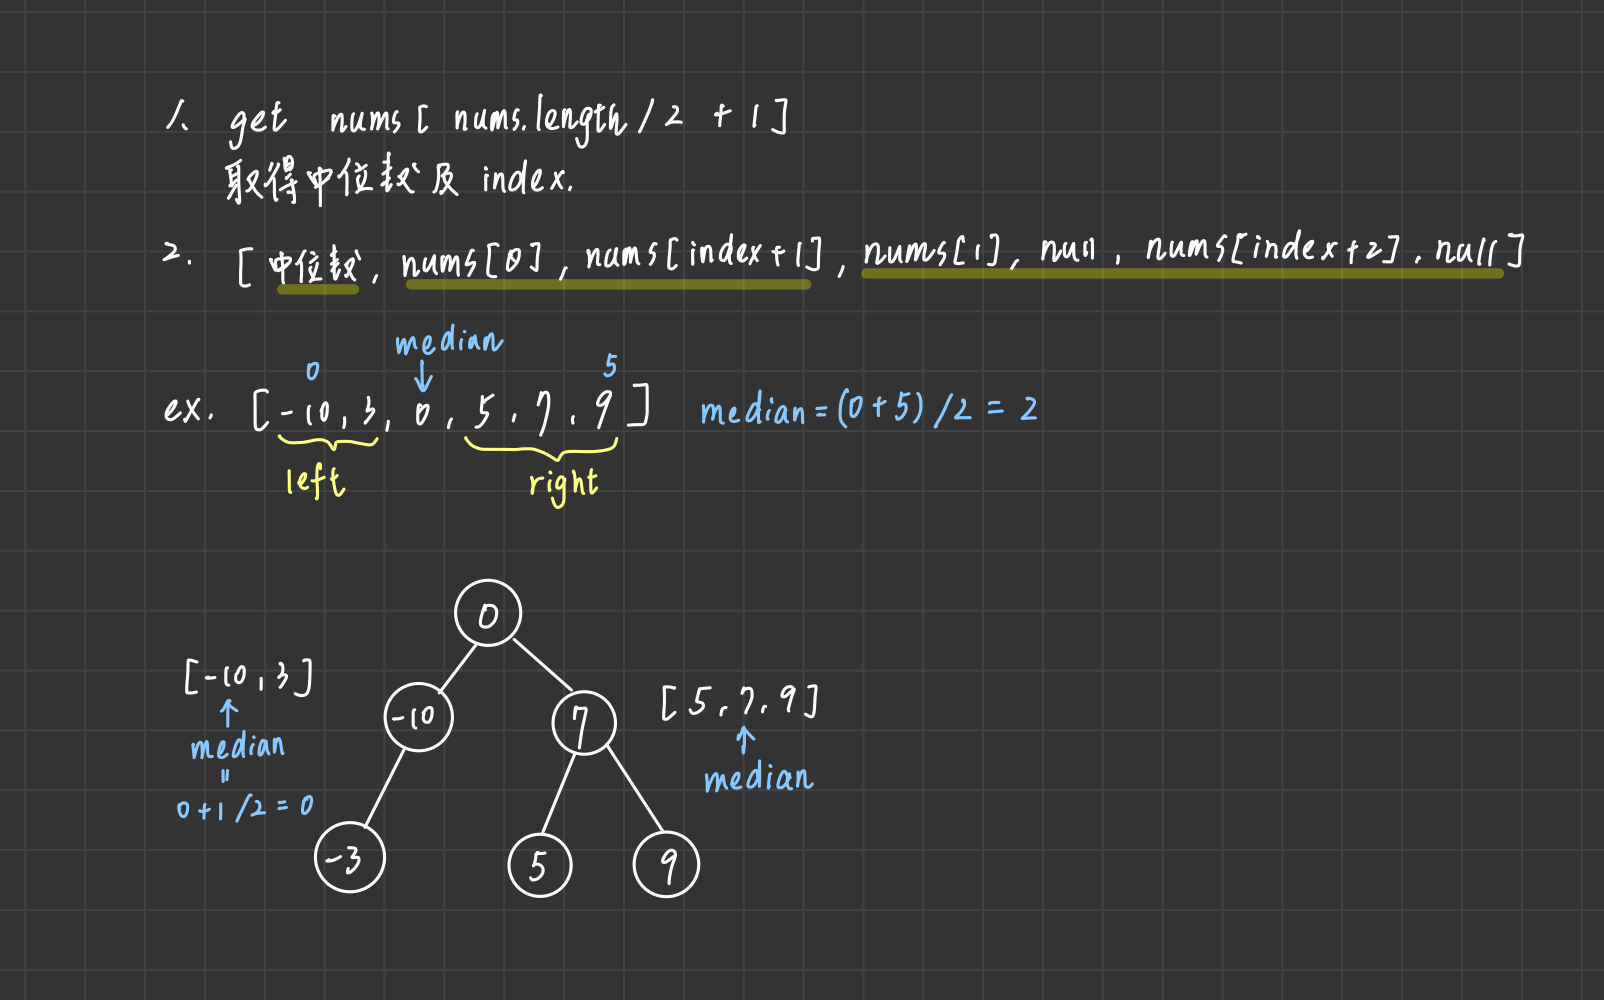 1. get nums [ nums.length / 2 + 1 ]
取得中位數及 index.
2. [ 中位數, nums[0], nums[index+1], nums[1], null, nums[index+2], null ]
median
0
5
ex. [ -10, 3, 0, 5, 7, 9 ] median = (0+5)/2 = 2
left
right
0
[-10, 3]
-10
7
[5, 7, 9]
median
"
median
0+1/2=0
-3
5
9